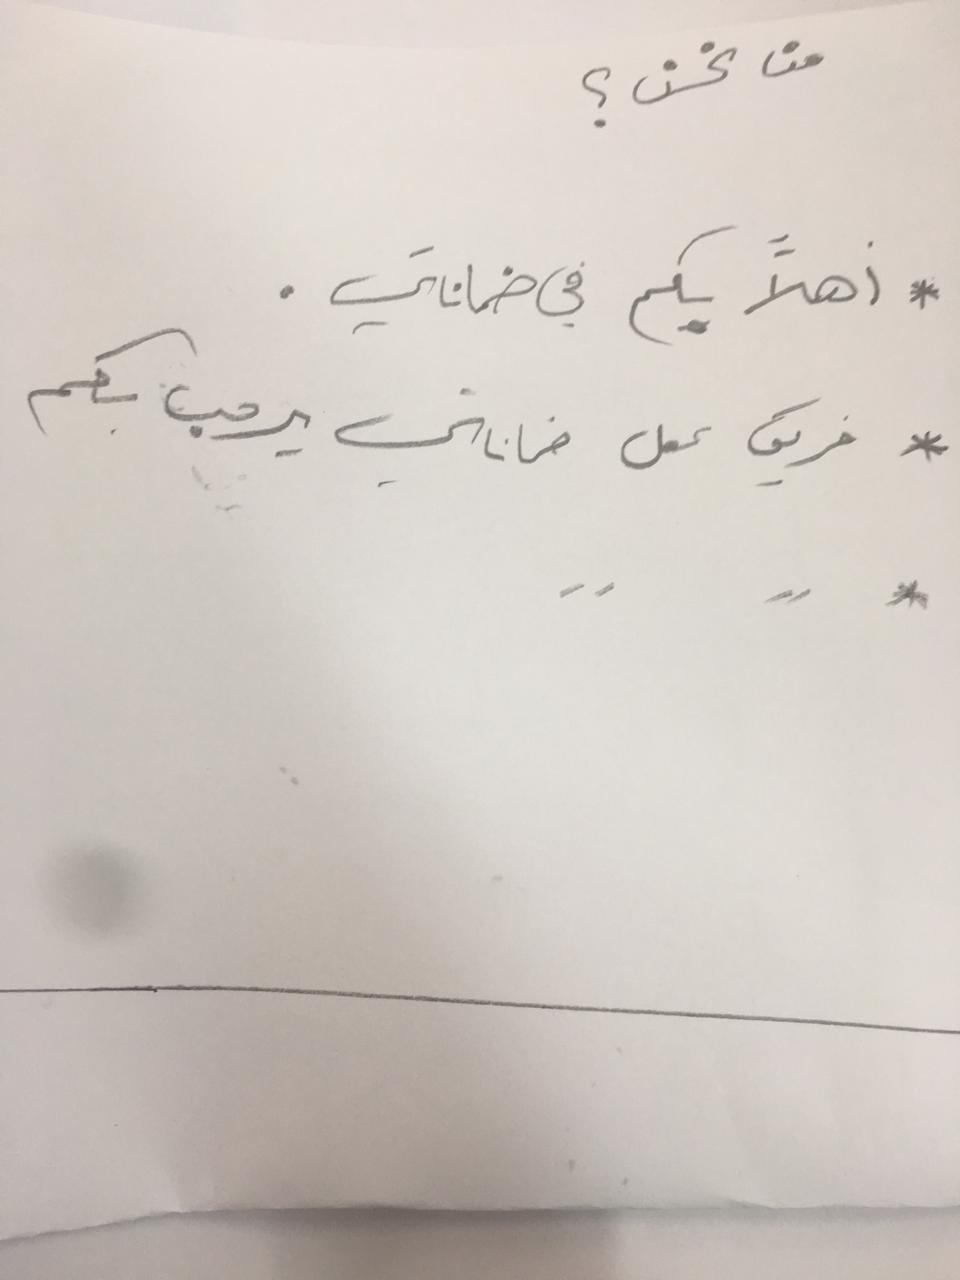 من نحن ؟
* أهلاً بكم في ضماناتي .
* فريق عمل ضماناتي يرحب بكم
* 〃 〃